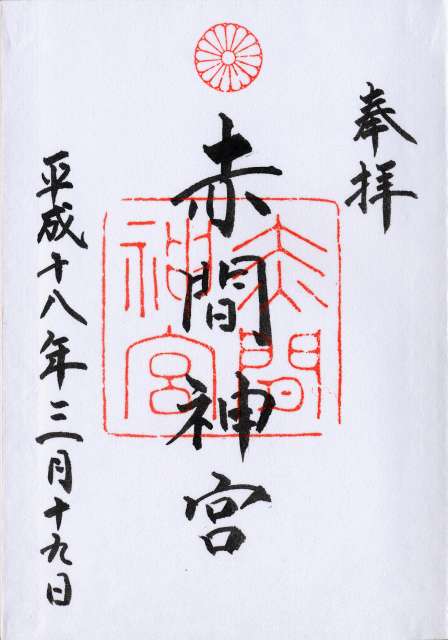 奉拝
赤間神宮
赤間
神宮
平成十八年三月十九日